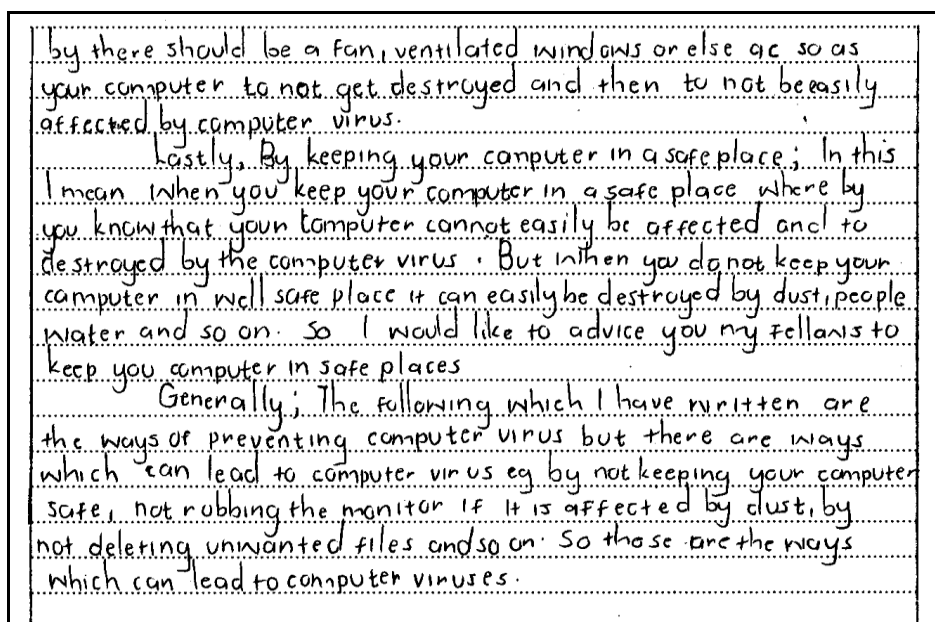 by there should be a fan, ventilated windows or else ac so as
your computer to not get destroyed and then to not beeasily
affected by computer virus.
Lastly, By keeping your computer in a safe place; In this
I mean when you keep your computer in a safe place where by
you know that your computer cannot easily be affected and to
destroyed by the computer virus. But when you do not keep your
computer in well safe place it can easily be destroyed by dust, people
water and so on. So I would like to advice you my fellows to
keep you computer in safe places
Generally; The following which I have written are
the ways of preventing computer virus but there are ways
which can lead to computer virus eg by not keeping your computer
safe, not rubbing the monitor if it is affected by dust, by
not deleting unwanted files and so on. So those are the ways
which can lead to computer viruses.